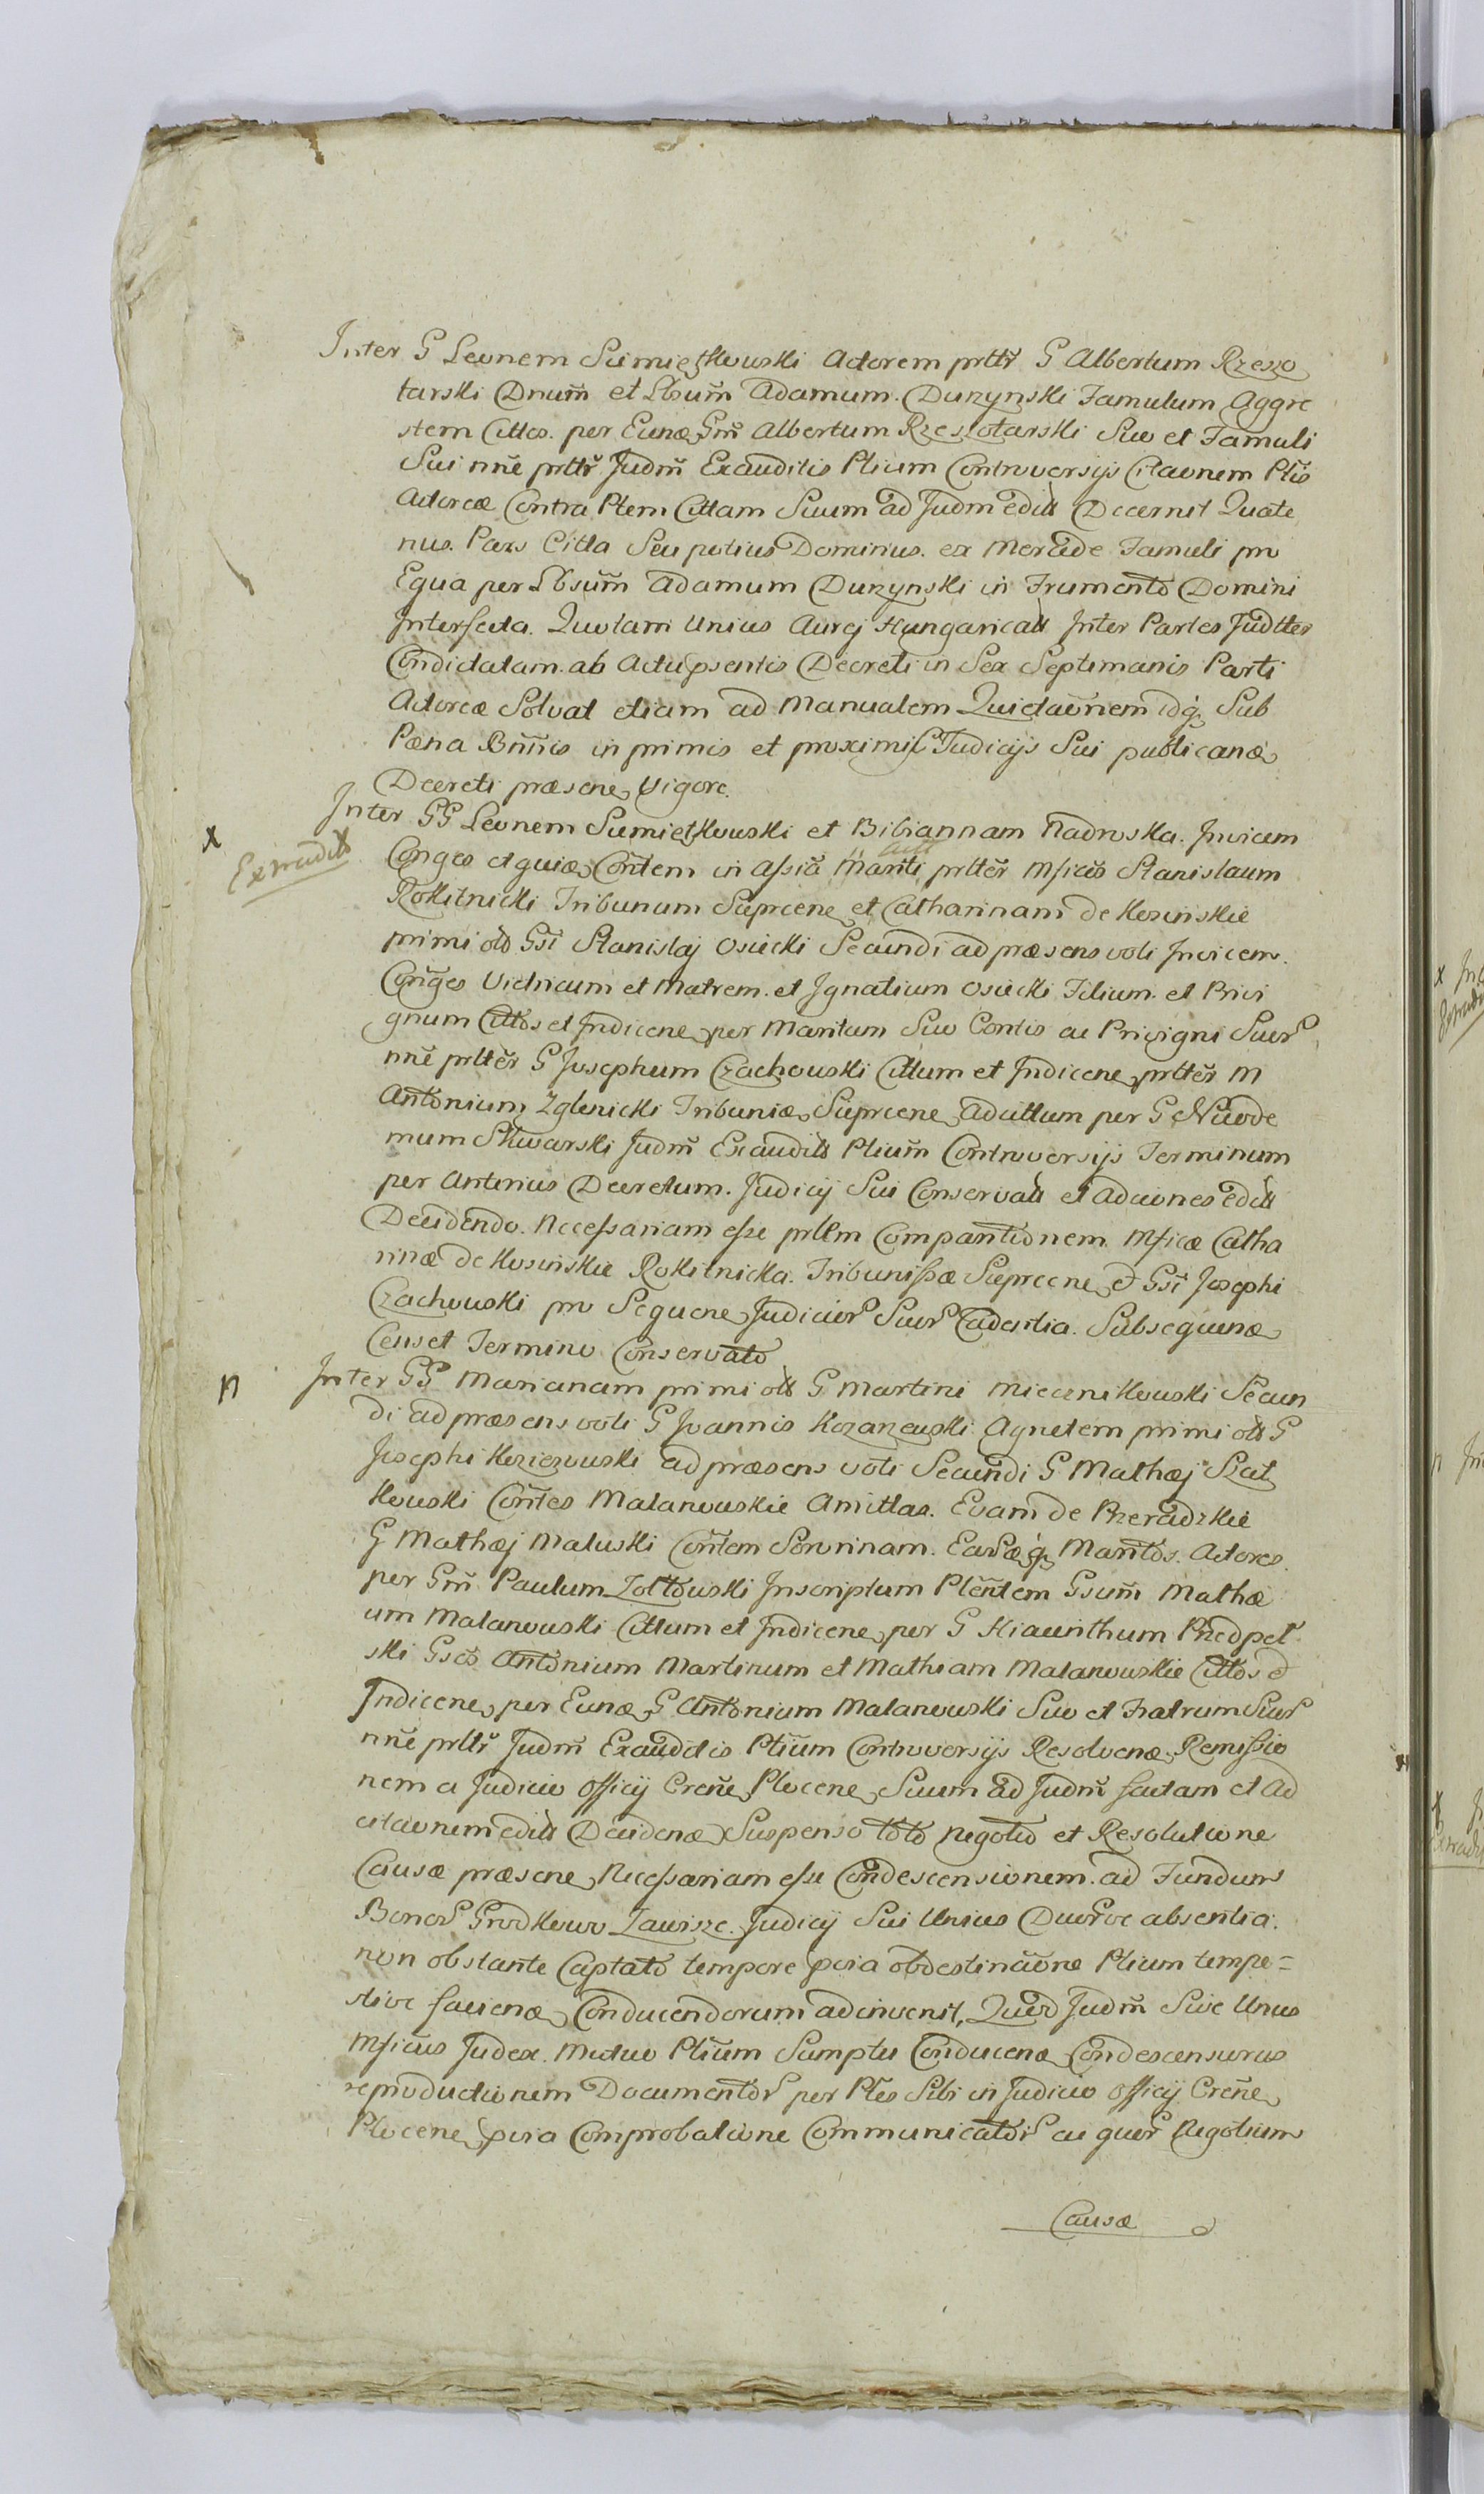 Inter G Leonem Sumiętkowski Actorem prttr G Albertum Rzeszo
tarski Dnum et Lbsum Adamum Durzynski Famulum Aggre
stem Cittos. per Eunde Gm Albertum Rzeszotarski Suo et Famuli
Sui nne prttr Judm Exauditis Ptium Controversijs Citaonem Ptis
Actoreæ Contra Ptem Cittam Suum ad Judm editt Decernit Quate
nus. Pars Citta Seu potius Dominus. ex Mercede Famuli pro
Equa per Lbsum Adamum Durzynski in Frumento Domini
Interfecta. Quotam Unius Aurej Hungaricatt Inter Partes Judtter
Condictatam. ab Actu psentis Decreti in Sex Septimanis Parti
Actoreæ Solvat etiam ad Manualem Quietaonem idq Sub
Pæna Bnnis in primis et proximis Judicijs Sui publicand
Decreti præsene Vigore.
x Inter GG Leonem Sumiętkowski et Bibiannam Nadroska. Invicem
Extraditt Conges et quidem Contem in Assia Mariti prtter Mficos Stanislaum
actt
Rokitnicki Tribunum Sieprcene et Catharinam de Kosinskie
primi ott Gsi Stanislaj Osiecki Secundi ad præsens voti Invicem.
Conges Vitricum et Matrem. et Ignatium Osiecki Filium. et Privi
gnum Cittos et Indicene per Maritum Suo Contis ac Privigni Suor
nne prtter G Josephum Czachowski Cittum et Indicene prtter M
Antonium Zglenicki Tribunid Sieprcene Adcittum per G Nicode
mum Skwarski Judm Exauditt Ptium Controversijs Terminum
per Anterius Decretum. Judicij Sui Conservatt et Adciones editt
Decidendo. Necessariam esse prttm Comparitionem. Mficæ Catha
rinæ de Kosinskie Rokitnicka. Tribunissæ Sieprcene et Gsi Josephi
Czachowski pro Sequene Judicior Suor Cadentia. Subsequend
Censet Termino Conservato
n Inter GG Marianam primi ott G Martini Miecznikowski Secun
di ad præsens voti G Joannis Kozanewski Agnetem primi ott G
Josephi Keziczowski ad præsens voti Secundi G Mathæj Szat
kowski Contes Malanowskie Amittas. Evam de Pieradzkie
G Mathæj Maluski Contem Sororinam. Earumq Maritos. Actores
per Gm Paulum Zołtowski Inscriptum Plentem Gsum Mathæ
um Malanowski Cittum et Indicene per G Hiacinthum Przedpeł
ski Gsos Antonium Martinum et Mathiam Malanowskie Cittos et
Indicene per Eunde G Antonium Malanowski Suo et Fratrum Suor
nne prttr Judm Exauditis Ptium Controversijs Resolvend Remissio
nem a Judicio Officij Crene Plocene Suum ad Judm factam et ad
citaonem editt Decidend Suspenso toto negotio et Resolutione
Causæ præsene Necessariam esse Condescensionem ad Fundum
Bonor Grodkowo Zawisze. Judicij Sui Unius Duorve absentia.
non obstante Captato tempore pvia obdestinaone Ptium tempe=
stive faciend Conducendorum adinvenit, Quod Judm Sive Unus
Mficus Judex. Mutuo Ptium Sumptu Conducend Condescensurus
reproductionem Documentor per Ptes Sibi in Judicio Officij Crene
Plocene pvia Comprobatione Communicator ac quor Negotium
Causæ